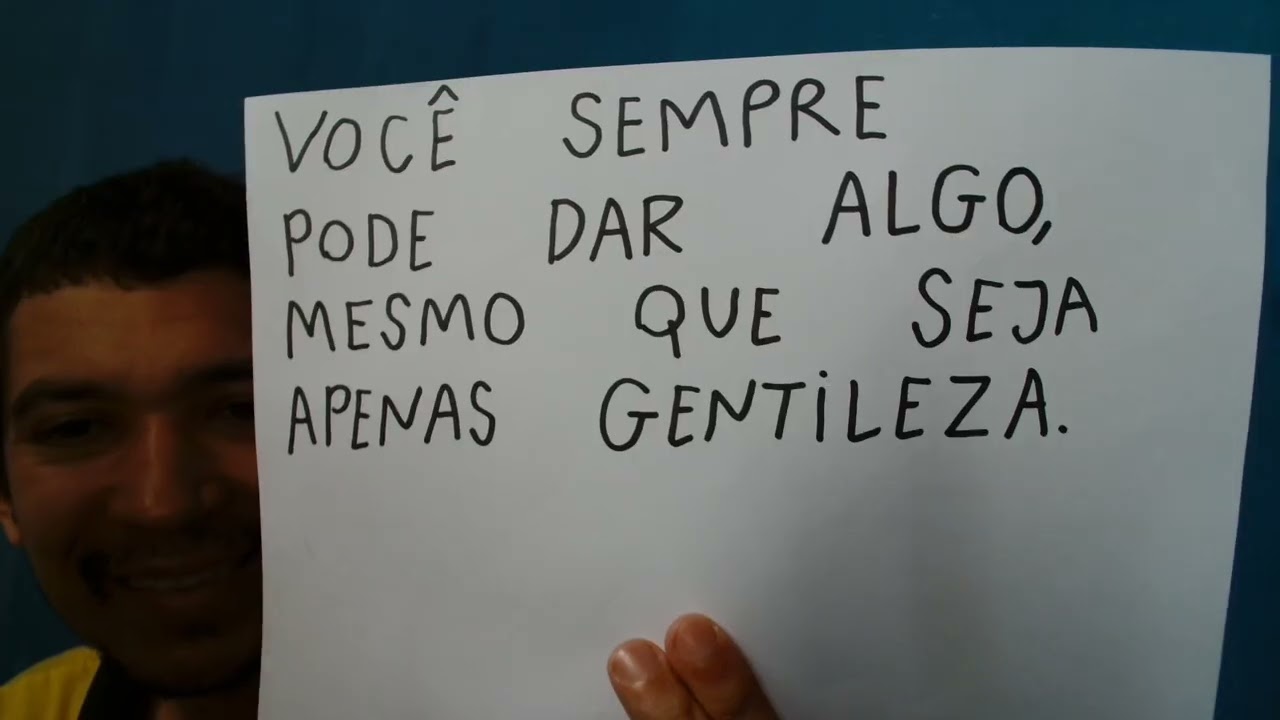 VOCÊ SEMPRE
PODE DAR ALGO,
MESMO QUE SEJA
APENAS GENTILEZA.